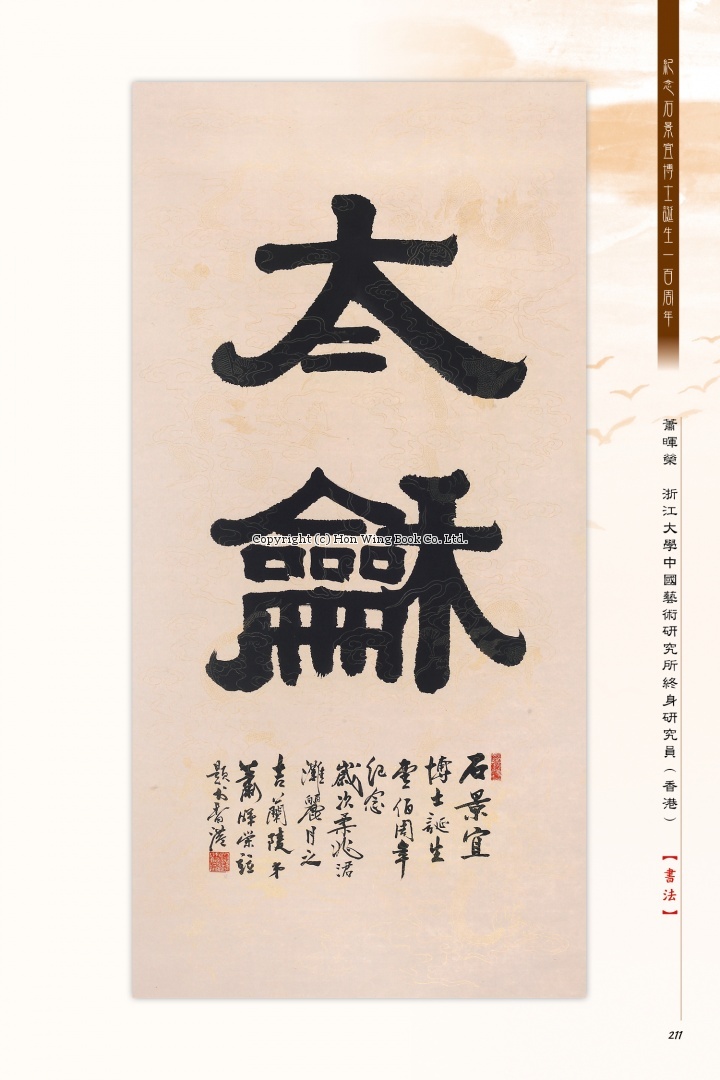 紀念石景宜博士誕生一百周年
蕭暉榮 浙江大學中國藝術研究所終身研究員（香港）
【書法】
夳
龢
Copyright (c) Hon Wing Book Co. Ltd.
石景宜
博士誕生
壹佰周年
紀念
歲次柔兆涒
灘麗月之
吉蘭陵弟
蕭暉榮
題於香港
211